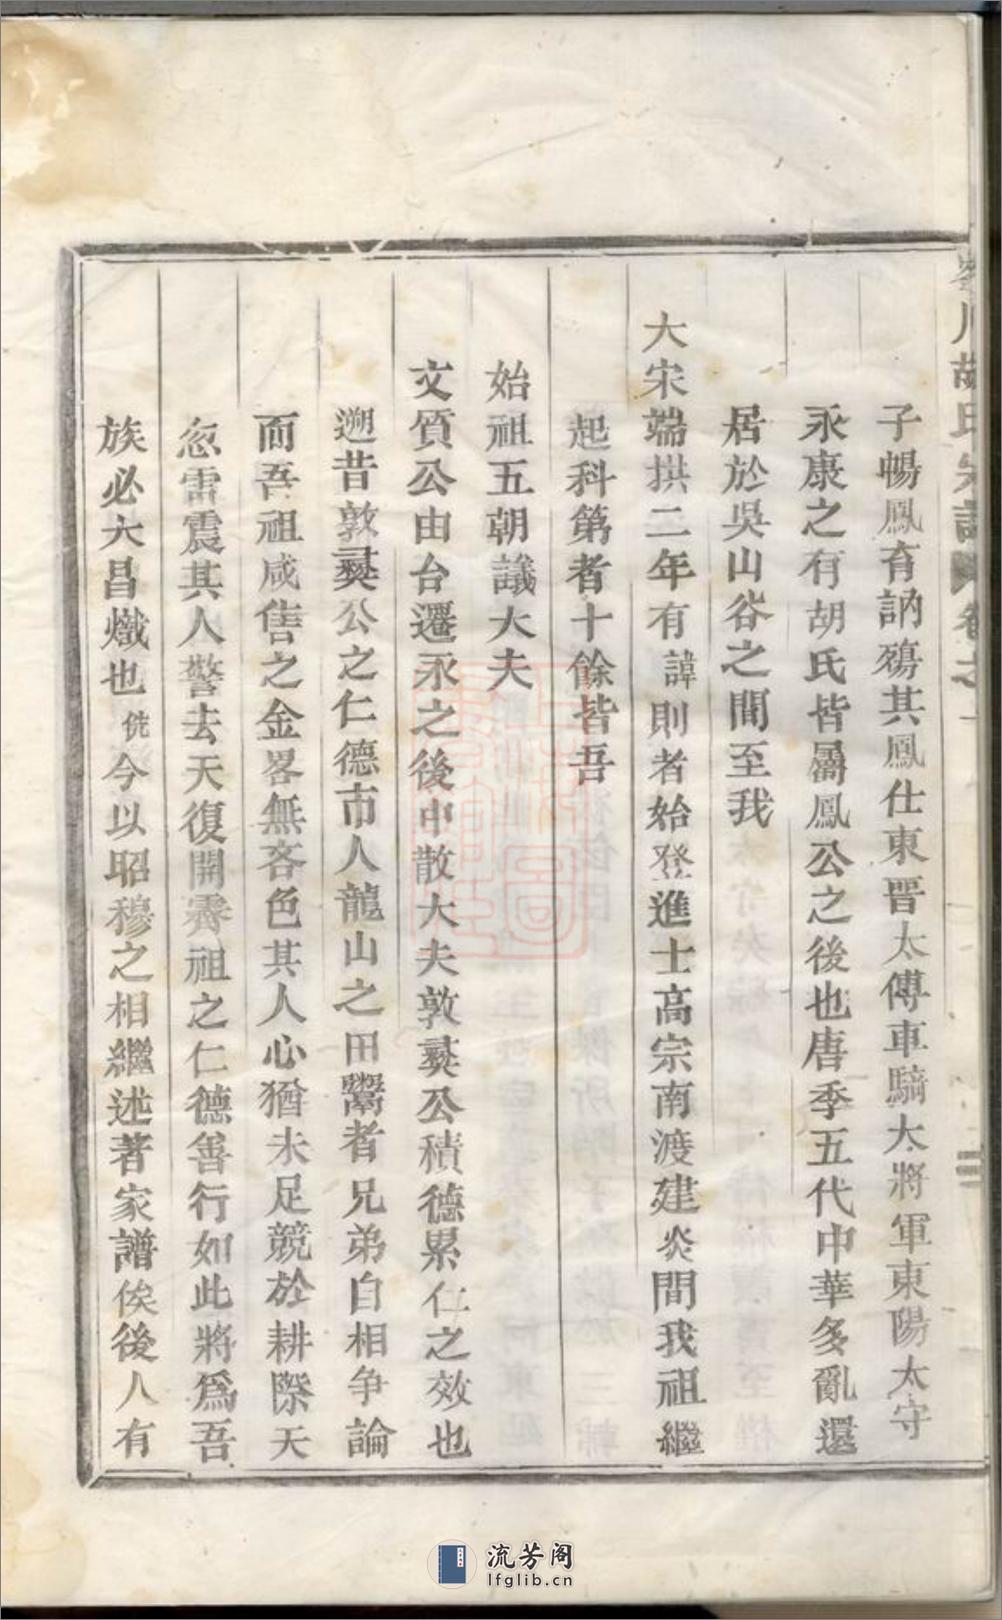 川胡氏宗譜 卷之一
子暢鳳育訥殤其鳳仕東晋太傅車騎大將軍東陽太守
永康之有胡氏皆屬鳳公之後也唐季五代中華多亂還
居於吳山谷之間至我
大宋端拱二年有諱則者始登進士高宗南渡建炎間我祖繼
起科第者十餘皆吾
始祖五朝議大夫
文質公由台遷永之後中散大夫敦彝公積德累仁之效也
遡昔敦彝公之仁德市人龍山之田鬻者兄弟自相争論
而吾祖咸售之金畧無吝色其人心猶未足競於耕際天
忽雷震其人警去天復開霽祖之仁德善行如此將爲吾
族必大昌熾也侊今以昭穆之相繼述著家譜俟後人有
流芳阁
lfglib.cn